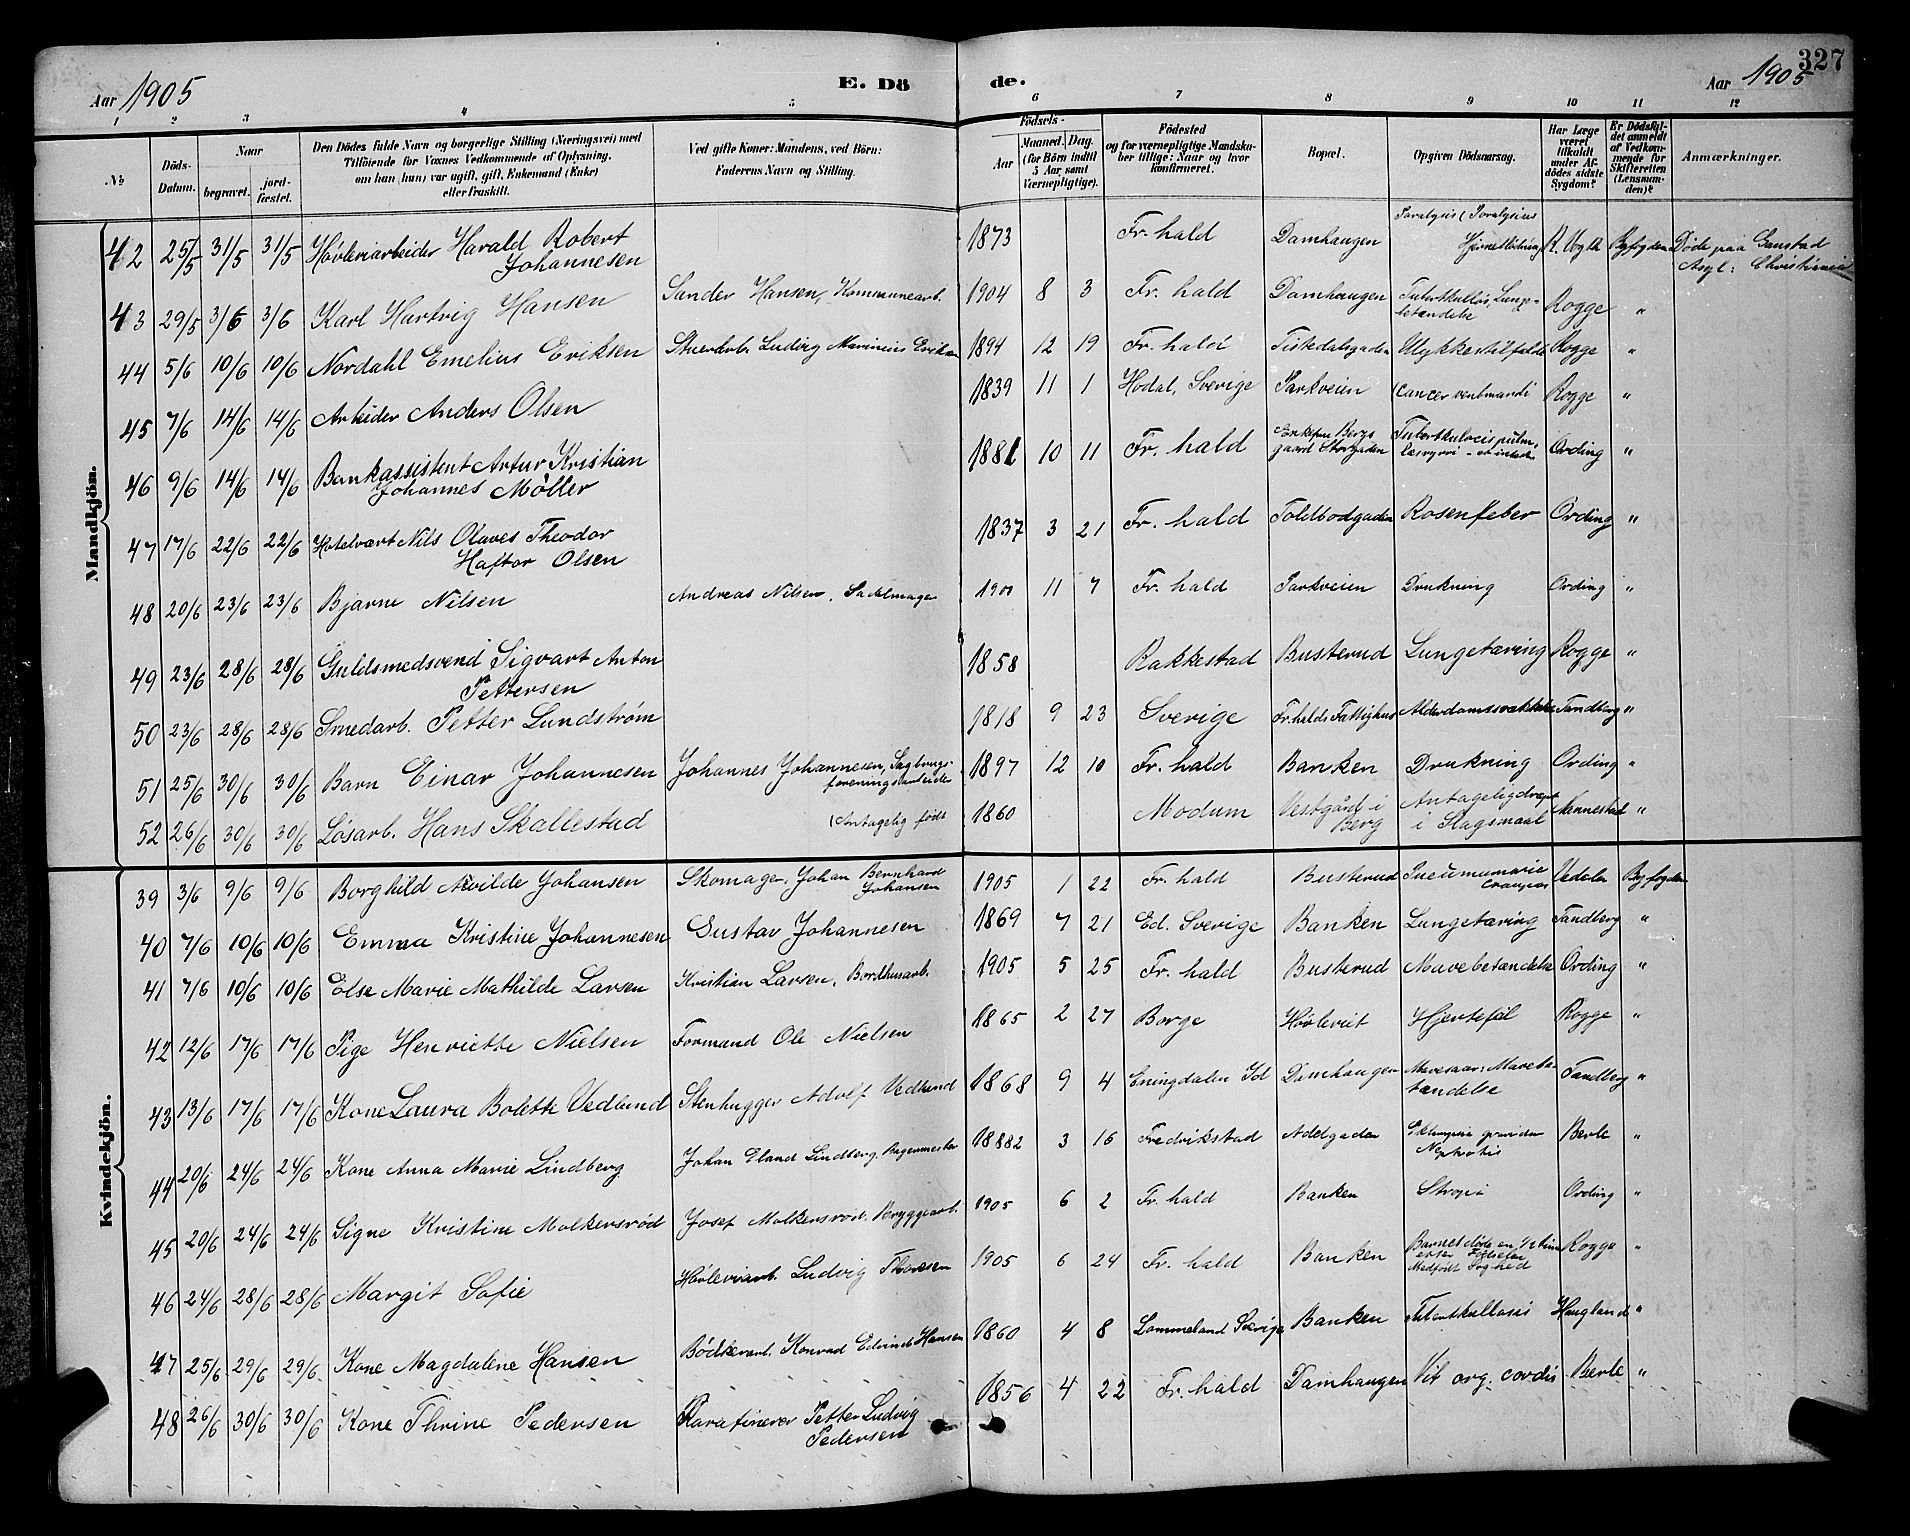 Aar 1905 E. Dö de. Aar 1905 327
1 2 3 4 5 6 7 8 9 10 11 12
№ Döds-Datum. Naar begravet. jord-fæstet. Den Dödes fulde Navn og borgerlige Stilling (Næringsvei) med Tilföiende for Voxnes Vedkommende af Oplysning, om han (hun) var ugift, gift, Enkemand (Enke) eller fraskilt. Ved gifte Koner: Mandens, ved Börn: Faderens Navn og Stilling. Födsels- Aar Maaned. Dag. (for Börn indtil 5 Aar samt Værnepligtige). Födested og for værnepligtige Mandskaber tillige: Naar og hvor konfirmeret. Bopæl. Opgiven Dödsaarsag. Har Læge været tilkaldt under Afdödes sidste Sygdom? Er Dödsfaldet anmeldt af Vedkommende for Skifteretten (Lensmanden)? Anmærkninger.
Mandkjön.
42 25/5 31/5 31/5 Høvleriarbeider Harald Robert Johannesen 1873 Fr. hald Damhaugen Byfogden Døde paa Gaustad Asyl: Christiania
43 29/5 3/6 3/6 Karl Hartvig Hansen Sander Hansen, Kommunearb. 1904 8 3 Fr. hald Damhaugen Lungebetændelse Rogge "
44 5/6 10/6 10/6 Nordahl Emelius Eriksen Stuerarb. Ludvig Marinius Eriksen 1894 12 19 Fr. hald Tistedalsgaden Ulykkestilfælde Rogge "
45 7/6 14/6 14/6 Arbeider Anders Olsen 1839 11 1 Hodal, Sverige Parkveien Cancer ventrikuli Rogge "
46 9/6 14/6 14/6 Bankassistent Artur Kristian Johannes Møller 1881 10 11 Fr. hald Storgaden Ording "
47 17/6 22/6 22/6 Hotelvært Nils Olaves Theodor Haftor Olsen 1837 3 21 Fr. hald Toldbodgaden Rosenfeber Ording "
48 20/6 23/6 23/6 Bjarne Nilsen Andreas Nilsen, Sadelmager 1900 11 7 Fr. hald Parkveien Drukning Ording "
49 23/6 28/6 28/6 Guldsmedsvend Sigvart Anton Pettersen 1858 Rakkestad Busterud Lungetæring Rogge "
50 23/6 28/6 28/6 Smedarb. Petter Lundstrøm 1818 9 23 Sverige Fr.halds Fattighus Alderdomssvækkelse Tandberg "
51 25/6 30/6 30/6 Barn Einar Johannesen Johannes Johannesen, Sagbrugsforeningsarbeider 1897 12 10 Fr. hald Banken Drukning Ording "
52 26/6 30/6 30/6 Løsarb. Hans Skallestad (Antagelig født 1860 Modum Vestgård i Berg Antagelig dræpt i Slagsmaal Nannestad "
Kvindekjön.
39 3/6 9/6 9/6 Borghild Alvilde Johansen Skomager Johan Bernhard Johansen 1905 1 22 Fr. hald Busterud Vedeler Byfogden
40 7/6 10/6 10/6 Emma Kristine Johannesen Gustav Johannesen 1869 7 21 Ed. Sverige Banken Lungetæring Tandberg "
41 7/6 10/6 10/6 Else Marie Mathilde Larsen Kristian Larsen, Bordhusarb. 1905 5 25 Fr. hald Busterud Mavebetændelse Ording "
42 12/6 17/6 17/6 Pige Henriette Nielsen Formand Ole Nielsen 1865 2 27 Borge Høvleriet Hjertefeil Rogge "
43 13/6 17/6 17/6 Kone Laura Bolette Vedlund Stenhugger Adolf Vedlund 1868 9 4 Eningdalen Id Damhaugen Mavesaar; Mavebetændelse Tandberg "
44 20/6 24/6 24/6 Kone Anna Marie Lindberg Johan Eland Lindberg, Bagermester 18882 3 16 Fredrikstad Adelgaden Berle "
45 20/6 24/6 24/6 Signe Kristine Molkersrød Josef Molkersrød, Bryggearb. 1905 6 2 Fr. hald Banken Ording "
46 24/6 28/6 28/6 Margit Sofie Høvleriarb. Ludvig Thoresen 1905 6 24 Fr. hald Banken Barnet døde en 1/2 time efter Fødselen Medfødt Svaghed Rogge "
47 25/6 29/6 29/6 Kone Magdalene Hansen Bødkerarb. Konrad Edvind Hansen 1860 4 8 Lommeland Sverige Banken Tuberkullosis Haugland "
48 26/6 30/6 30/6 Kone Thrine Pedersen Parafinerer Petter Ludvig Pedersen 1856 4 22 Fr. hald Damhaugen Vit org. cordis Berle "